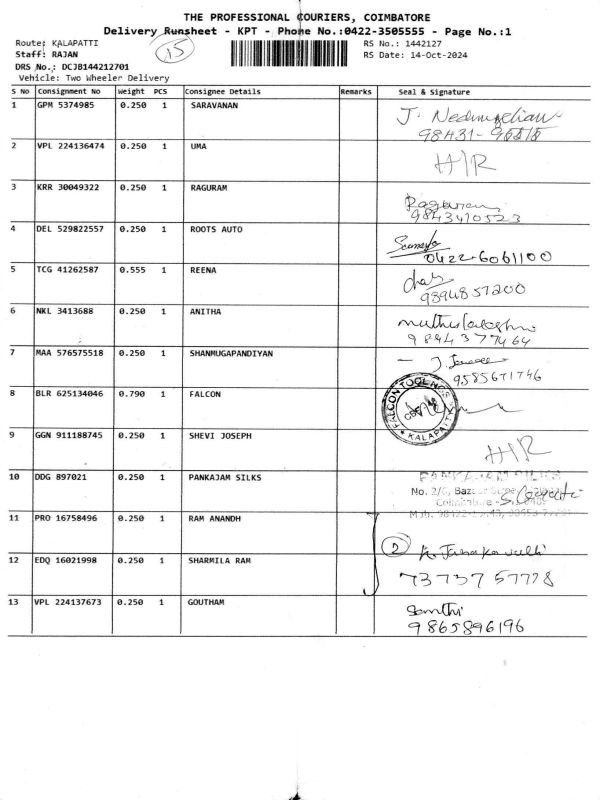 THE PROFESSIONAL COURIERS, COIMBATORE
Delivery Runsheet - KPT - Phone No.:0422-3505555 - Page No.:1
Route: KALAPATTI 15 RS No.: 1442127
Staff: RAJAN RS Date: 14-Oct-2024
DRS No.: DCJB144212701
Vehicle: Two Wheeler Delivery
S No Consignment No Weight PCS Consignee Details Remarks Seal & Signature
1 GPM 5374985 0.250 1 SARAVANAN J. Nedunchelian
98431-
2 VPL 224136474 0.250 1 UMA H/R
3 KRR 30049322 0.250 1 RAGURAM Raguram
9843410523
4 DEL 529822557 0.250 1 ROOTS AUTO
0422-6061100
5 TCG 41262587 0.555 1 REENA
9894857200
6 NKL 3413688 0.250 1 ANITHA
9844377464
7 MAA 576575518 0.250 1 SHANMUGAPANDIYAN
9585671746
8 BLR 625134046 0.790 1 FALCON FALCON TOOLINGS
KALAPATTI
9 GGN 911188745 0.250 1 SHEVI JOSEPH H/R
10 DDG 897021 0.250 1 PANKAJAM SILKS PANKAJAM SILKS
No. 2/6, Bazaar
Coimbatore
11 PRO 16758496 0.250 1 RAM ANANDH
2 K. Janakavalli
12 EDQ 16021998 0.250 1 SHARMILA RAM 73737 57778
13 VPL 224137673 0.250 1 GOUTHAM Santhi
9865896196